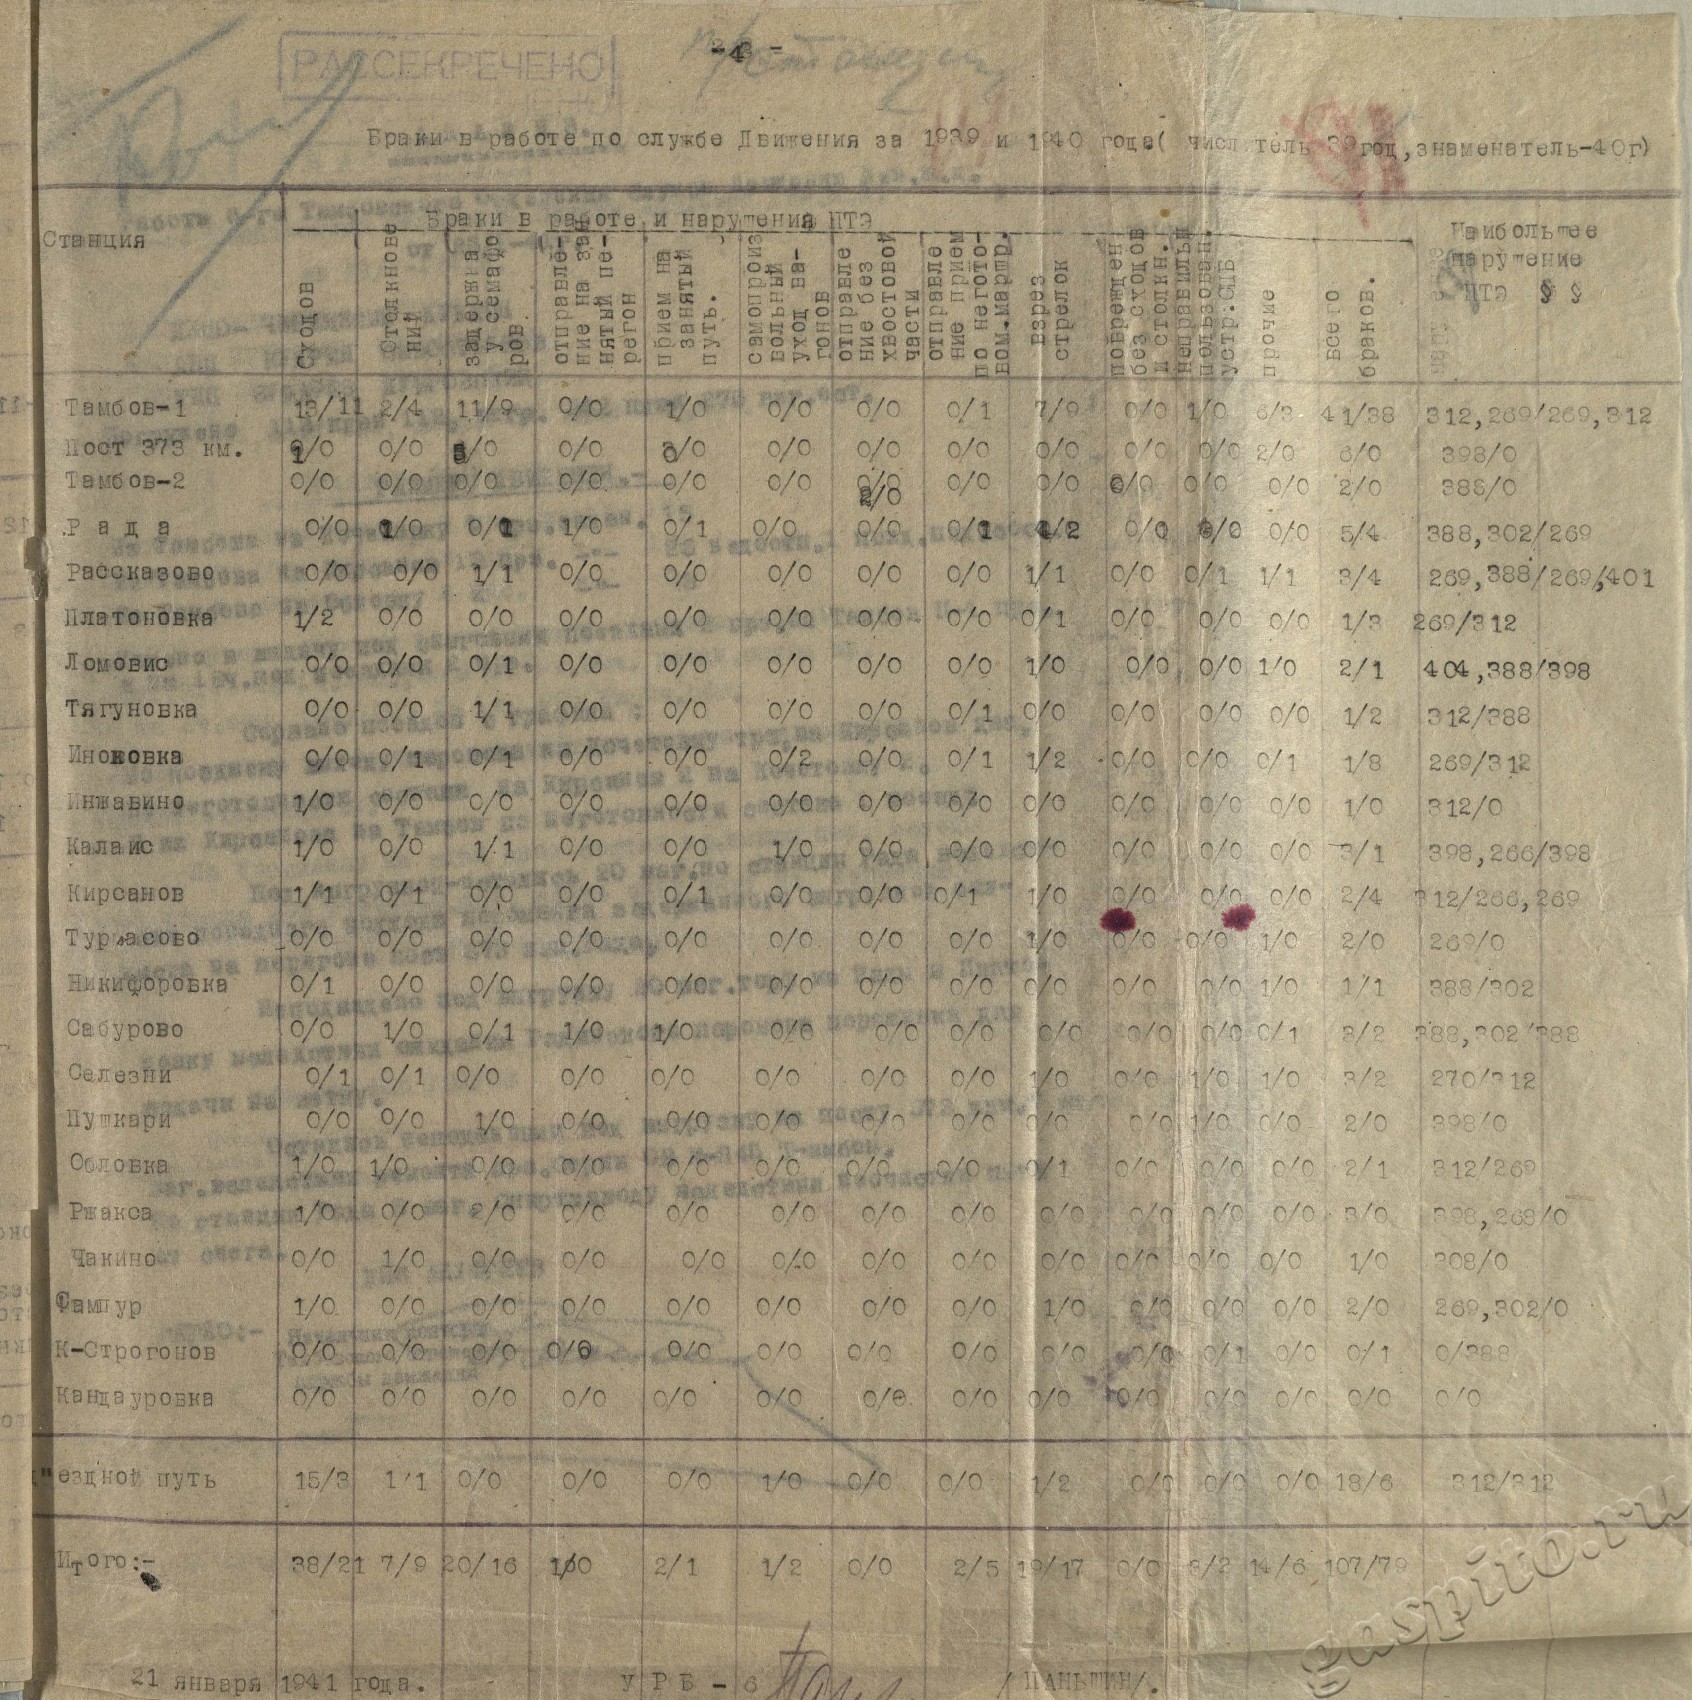 РАССЕКРЕЧЕНО
Браки в работе по службе Движения за 1939 и 1940 года( числитель 39год,знаменатель-40г)
Станция
Браки в работе и нарушения ПТЭ
Наибольшее нарушение ПТЭ § §
Сходов
Столкновений
задержка у семафоров.
отправление на занятый перегон
прием на занятый путь.
самопроизвольный уход вагонов
отправление без хвостовой части
отправление прием по неготовом.маршр.
взрез стрелок
поврежден без сходов и столкн.
неправильн пользован. устр.СЦБ
прочие
всего браков.
Тамбов-1 13/11 2/4 11/9 0/0 1/0 0/0 0/0 0/1 7/9 0/0 1/0 6/3 41/38 312,269/269,312
Пост 373 км. 1/0 0/0 3/0 0/0 0/0 0/0 0/0 0/0 0/0 0/0 0/0 2/0 6/0 398/0
Тамбов-2 0/0 0/0 0/0 0/0 0/0 0/0 2/0 0/0 0/0 0/0 0/0 0/0 2/0 386/0
Рада 0/0 1/0 0/1 1/0 0/1 0/0 0/0 0/1 /2 0/0 /0 0/0 5/4 388,302/269
Рассказово 0/0 0/0 1/1 0/0 0/0 0/0 0/0 0/0 1/1 0/0 0/1 1/1 3/4 269,388/269,401
Платоновка 1/2 0/0 0/0 0/0 0/0 0/0 0/0 0/0 0/1 0/0 0/0 0/0 1/3 269/312
Ломовис 0/0 0/0 0/1 0/0 0/0 0/0 0/0 0/0 1/0 0/0 0/0 1/0 2/1 404,388/398
Тягуновка 0/0 0/0 1/1 0/0 0/0 0/0 0/0 0/1 0/0 0/0 0/0 0/0 1/2 312/388
Иноковка 0/0 0/1 0/1 0/0 0/0 0/2 0/0 0/1 1/2 0/0 0/0 0/1 1/8 269/312
Инжавино 1/0 0/0 0/0 0/0 0/0 0/0 0/0 0/0 0/0 0/0 0/0 0/0 1/0 312/0
Калаис 1/0 0/0 1/1 0/0 0/0 1/0 0/0 0/0 0/0 0/0 0/0 0/0 3/1 398,266/398
Кирсанов 1/1 0/1 0/0 0/0 0/1 0/0 0/0 0/1 1/0 0/0 0/0 0/0 2/4 312/266,269
Турласово 0/0 0/0 0/0 0/0 0/0 0/0 0/0 0/0 1/0 0/0 0/0 1/0 2/0 269/0
Никифоровка 0/1 0/0 0/0 0/0 0/0 0/0 0/0 0/0 0/0 0/0 0/0 1/0 1/1 388/302
Сабурово 0/0 1/0 0/1 1/0 1/0 0/0 0/0 0/0 0/0 0/0 0/0 0/1 3/2 388,302/388
Селезни 0/1 0/1 0/0 0/0 0/0 0/0 0/0 0/0 1/0 0/0 1/0 1/0 3/2 270/312
Пушкари 0/0 0/0 1/0 0/0 0/0 0/0 0/0 0/0 0/0 0/0 1/0 0/0 2/0 398/0
Обловка 1/0 1/0 0/0 0/0 0/0 0/0 0/0 0/0 0/1 0/0 0/0 0/0 2/1 312/269
Ржакса 1/0 0/0 2/0 0/0 0/0 0/0 0/0 0/0 0/0 0/0 0/0 0/0 3/0 398,268/0
Чакино 0/0 1/0 0/0 0/0 0/0 0/0 0/0 0/0 0/0 0/0 0/0 0/0 1/0 308/0
Сампур 1/0 0/0 0/0 0/0 0/0 0/0 0/0 0/0 1/0 0/0 0/0 0/0 2/0 269,302/0
К-Строгонов 0/0 0/0 0/0 0/0 0/0 0/0 0/0 0/0 0/0 0/0 0/1 0/0 0/1 0/388
Кандауровка 0/0 0/0 0/0 0/0 0/0 0/0 0/0 0/0 0/0 0/0 0/0 0/0 0/0 0/0
"ездной путь 15/3 1/1 0/0 0/0 0/0 1/0 0/0 0/0 1/2 0/0 0/0 0/0 18/6 312/312
Итого:- 38/21 7/9 20/16 1/0 2/1 1/2 0/0 2/5 19/17 0/0 3/2 14/6 107/79
21 января 1941 года. УРБ - 6 /ПАНЬШИН/.
gaspito.ru